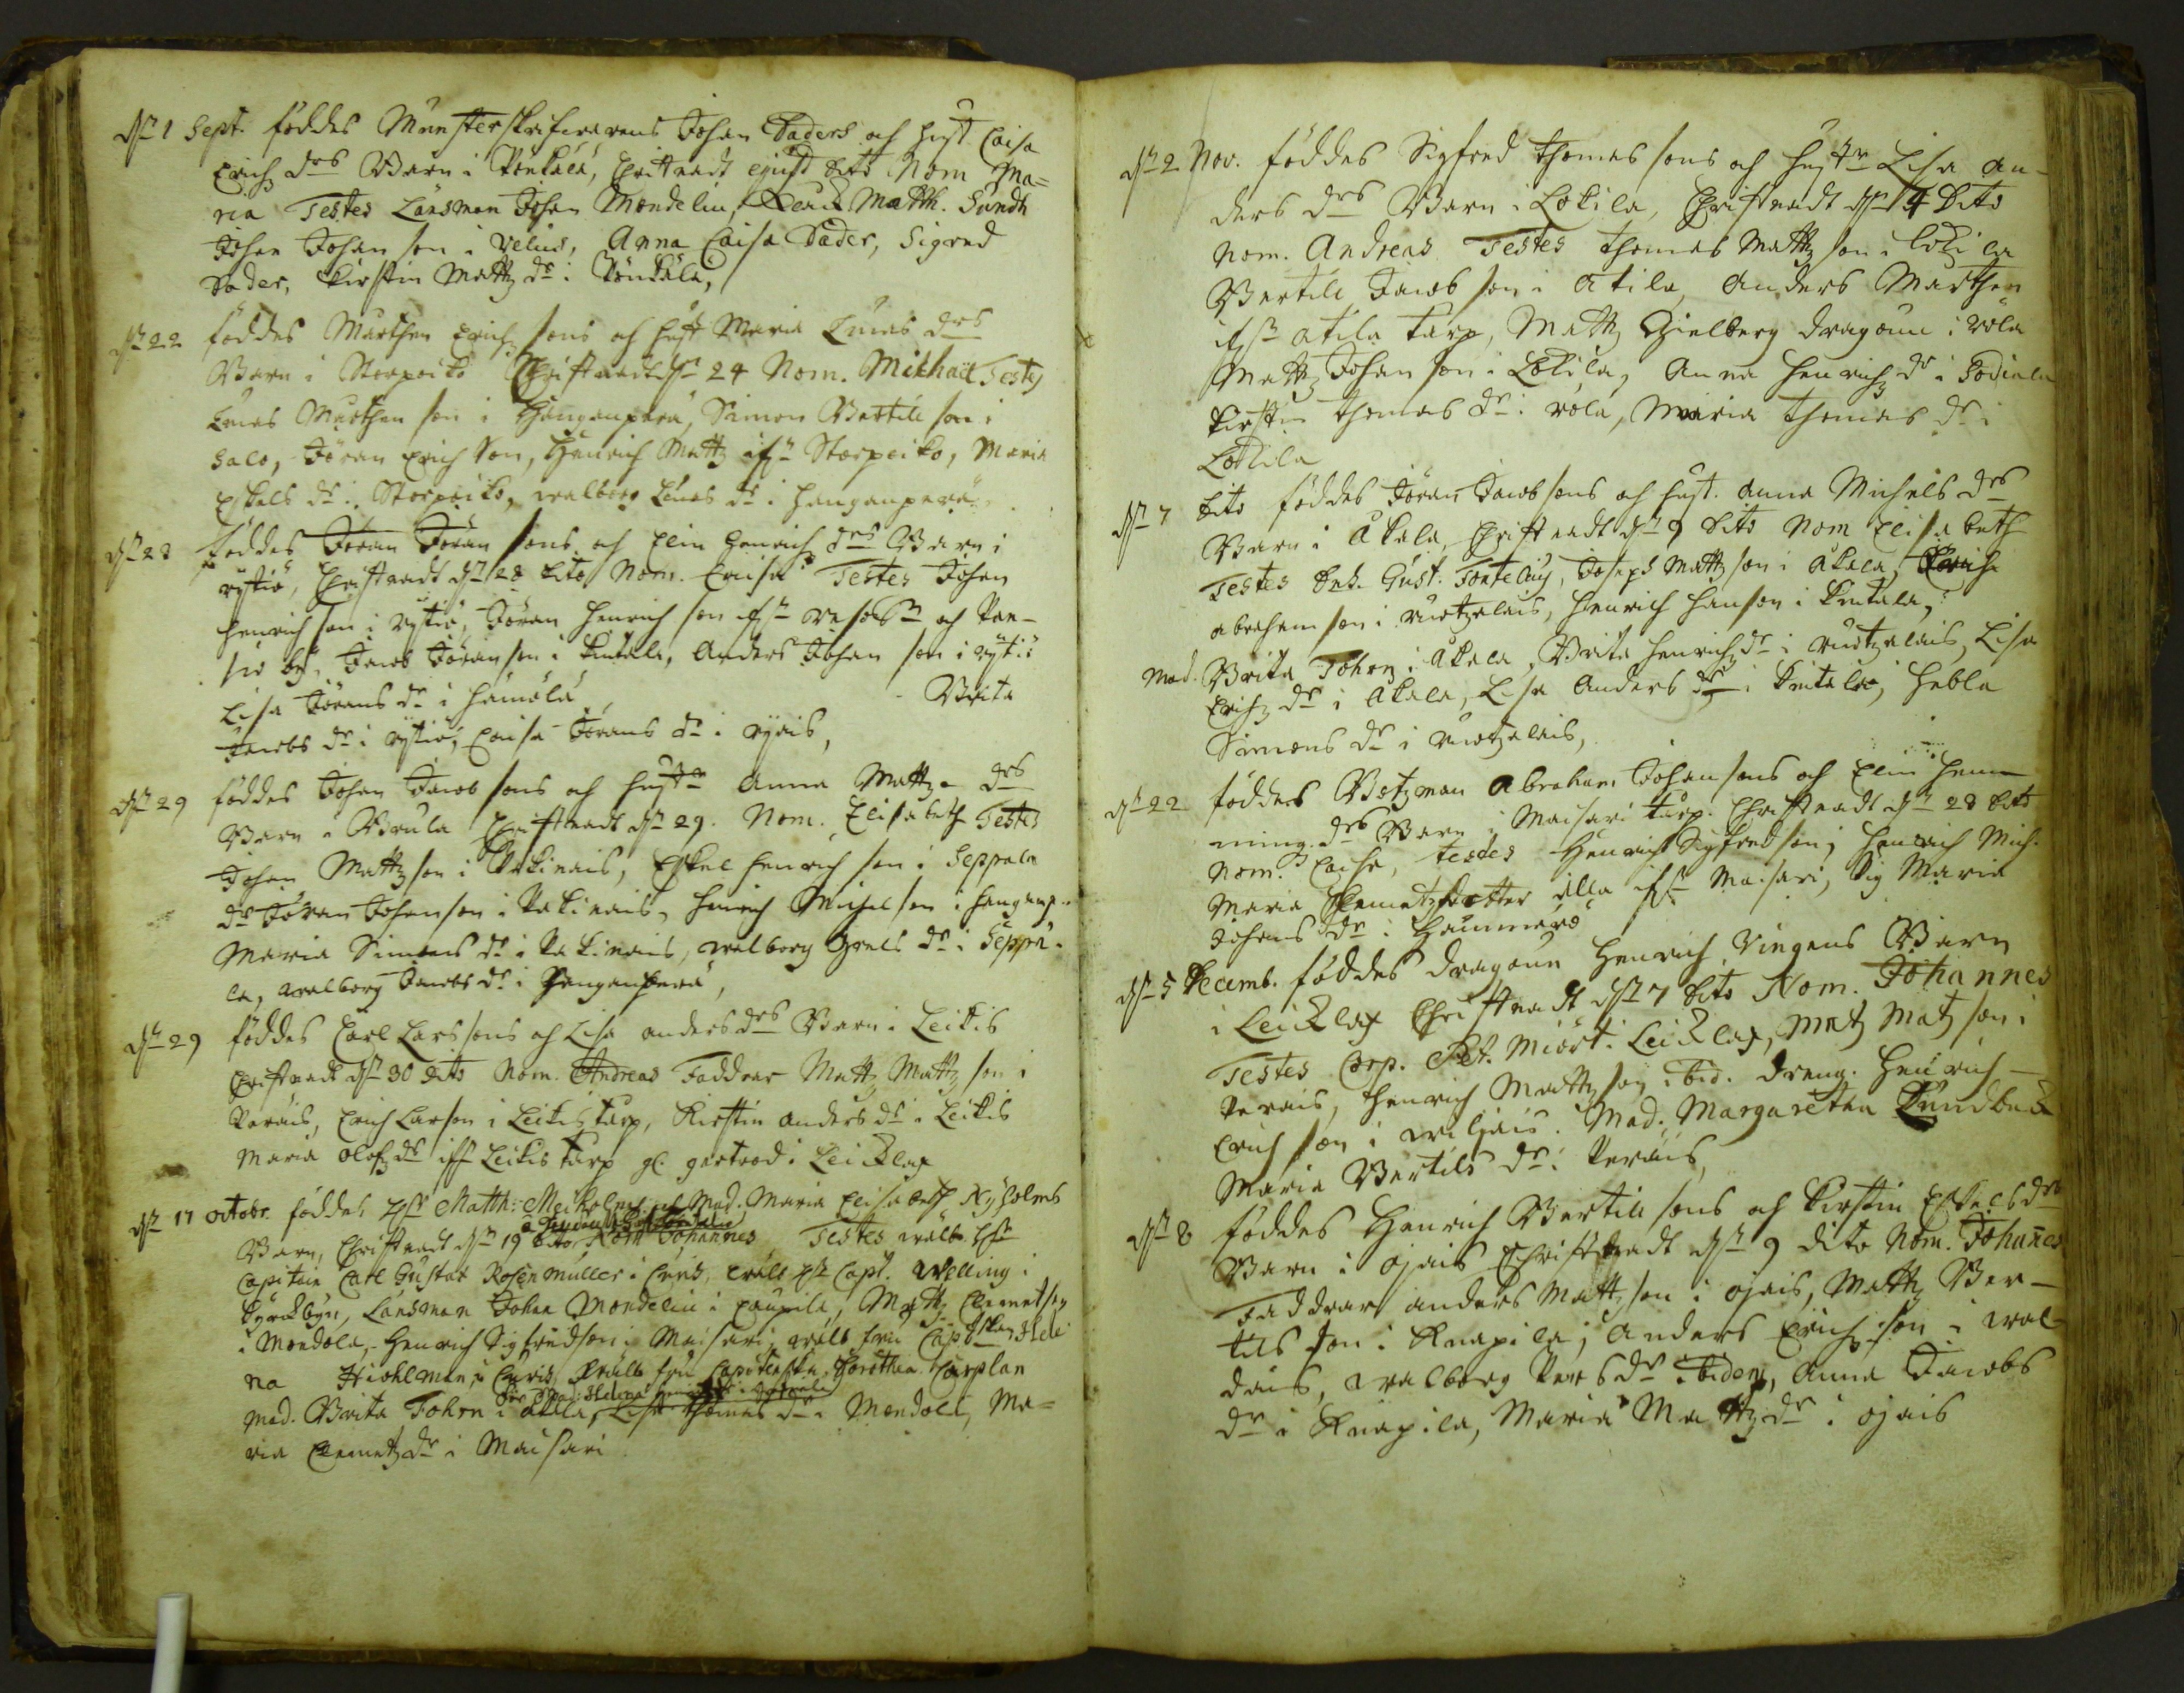 dn 1 Sept. föddes Munsterskrifwarens Johan Paders och hust. Caisa
Erichz drs Barn i Pönkälä, Christnadt ejusd dito Nom Ma=
ria Testes Länsman Johan Mondelin, Matth. Sundh
Johan Johan son i Velius, Anna Caisa Pader, Sigred
Pader, Kirstin Mattz dr i Pönkälä,
dn 22 föddes Marthen Erich sons och hust Maria Lucas drs
Barn i Storpeiko Christnadt dn 24 Nom. Mikhaël Testes
Lucas Marthen son i Hanganperä, Simon Bertill son i
Salo, Jöran Erich Son, Henrich Mattz ifrn Storpeiko, Maria
Eskels dr i Storpeiko, walborg Lucas dr i hanganperä
dn 28 föddes Jöran Jöran sons och Elin henrichz drs Barn i
rÿtiö, Christnadt dn 28 dito Nom. Caisa Testes Johan
henrich son i rÿtiö, Jöran henrich son ifrn och Pan-
sio by, Jacob Jöran son i Kintala, Anders Johan son i rÿtiö
Lisa Jörans dr i hämälä Brita
Jacobs dr i rÿtiö, Caisa Jörans dr i rÿeis,
dn 29 föddes Johan Jacob sons och hustr Anna Mattz drs
Barn i Baula Christnadt dn 29. Nom. Elisabeth Testes
Johan Mattz son i Pakinais, Eskel henrich son i Seppala
dr Jöran Johan son i Pakinais, hinrich Michel son i hanganp.
Maria Simons dr i Pakinais, walborg Grels dr i Seppä-
lä, walborg Jacobs dr i hanganperä,
dn 29 föddes Carl Lars sons och Lisa anders drs Barn i Leikis
Christnadt dn 30 dito Nom. Andreas Faddrar Mattz Mattz son i
Peräis, Erich Larson i Leikis tarp, Kirstin anders dr i Leikis
Maria Olofz dr ifr Leikis tarp gl. gertrod i Leicklax
dn 17 octobr. föddes Hr Matth: Meiholms och Mad. Maria Elisabeth Nyholms
Barn, Christnadt dn 19 dito Nom Johannes Testes wälb. Hr
Capitain Carl Gustav Rosenmuller i Curis, wälb Hr Capt. Welling i
Kyrckbyn, Länsman Johan Mondelin i Caupila, Mattz Clemetson
i Mondola, Henrich Sigfridson i Maisari, wälb fru Capt-skan Hele
na Hiohlman i Curis, wälb fru Capitenskan Dorothea Carplan
Mad. Brita Fohrn i Akala, Lisa Thomas dr i Mondola, Ma=
ria Clemetz dr i Maisari
dn 2 Nov. föddes Sigfred Thomas sons och hustr Lisa An-
ders drs Barn i Lökila, Christnadt dn 4 dito
Nom. Andreas Testes Thomas Mattz son i Lökila
Bertill Jacob son i Atila, Anders Marthen
ifrn Atila tarp, Mattz Gielberg Dragoun i rola
Mattz Johan son i Lökila, Anna henrichz dr i Södiala
Kirstin Thomas dr i rola, Maria Thomas dr i
Lökila
dn 7 dito föddes Jöran Jacob sons och hust. Anna Michels drs
Barn i Akala, Christnadt dn 9 dito Nom Elisabeth
Testes Gust. Fonteliuj, Joseph Mattz son i Akala, Erich
abraham son i ruotzalais, Henrich Hanson i Kintala,
Mad. Brita Fohrn i Akala, Brita henrichz dr i ruotzalais, Lisa
Erichz dr i Akala, Lisa Anders dr i Kintala, Hebla
Simons dr i ruotzalais,
dn 22 föddes Botzman Abraham Johan sons och Elin hem
ming. drs Barn i Maisari tarp. Christnadt dn 28 dito
Nom. Caisa, testes Henrich Sigfred son, henrich Mich.
Maria Klemetz dotter alla ifrn Maisari, Pig Maria
Johans dr i Haumarö
dn 5 Decemb. föddes Dragoun Henrich Vingens Barn
i Leicklax Christnadt dn 7 dito Nom. Johannes
Testes Corp. Pet. Miört i Leicklax, Matz Matz son i
Peräis, Henrich Mattz son ibid. dreng. Henrich
Erich son i wiljais. Mad. Margaretha Lundbeck
Maria Bertils dr i Peräis,
dn 8 föddes Henrich Bertill sons och Kirstin Eskels drs
Barn i ojais Christnadt dn 9 dito Nom. Johannes
Faddrar Anders Mattz son i ojais, Mattz Ber-
tils son i Knapila, Anders Erichz son i wal-
dais, walborg Pers dr Ibidem, Anna Jacobs
dr i Knapila, Maria Mattz dr i ojais